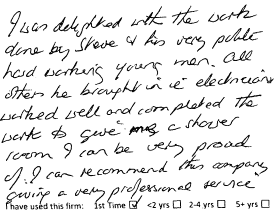 I was delighted with the work
done by Steve & his very polite
hard working young men. All
others he brought in ie electricians
worked well and completed the
work to give me a shower
room I can be very proud
of. I can recommend this company
giving a very professional service
I have used this firm: 1st Time ☑ <2 yrs ☐ 2-4 yrs ☐ 5+ yrs ☐